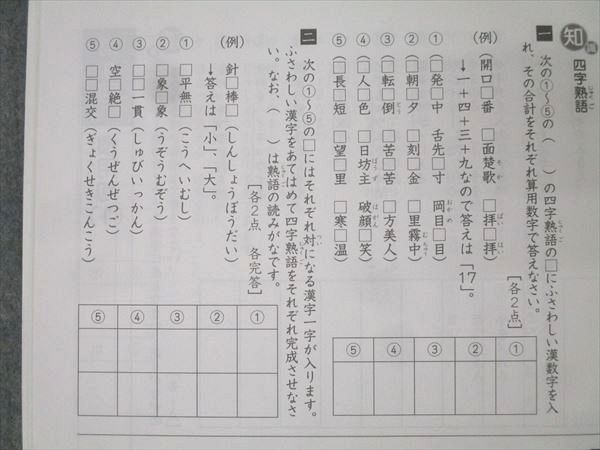 知識
四字熟語
一 次の①〜⑤の（　）の四字熟語の□にふさわしい漢数字を入
れ、その合計をそれぞれ算用数字で答えなさい。
［各2点］
（例）（開口□番　□面楚歌　□拝□拝）
→一＋四＋三＋九なので答えは「17」。
①（□発□中　舌先□寸　岡目□目）
②（□朝□夕　□刻□金　□里霧中）
③（□転□倒　□苦□苦　□方美人）
④（□人□色　□日坊主　破顔□笑）
⑤（□長□短　□望□里　□寒□温）
① ② ③ ④ ⑤
二 次の①〜⑤の□にはそれぞれ対になる漢字一字が入ります。
ふさわしい漢字をあてはめて四字熟語をそれぞれ完成させなさ
い。なお、（　）は熟語の読みがなです。
［各2点　各完答］
（例）針□棒□（しんしょうぼうだい）
→答えは「小」、「大」。
①□平無□（こうへいむし）
②□象□象（うぞうむぞう）
③□□一貫（しゅびいっかん）
④空□絶□（くうぜんぜつご）
⑤□□混交（ぎょくせきこんこう）
① ② ③ ④ ⑤